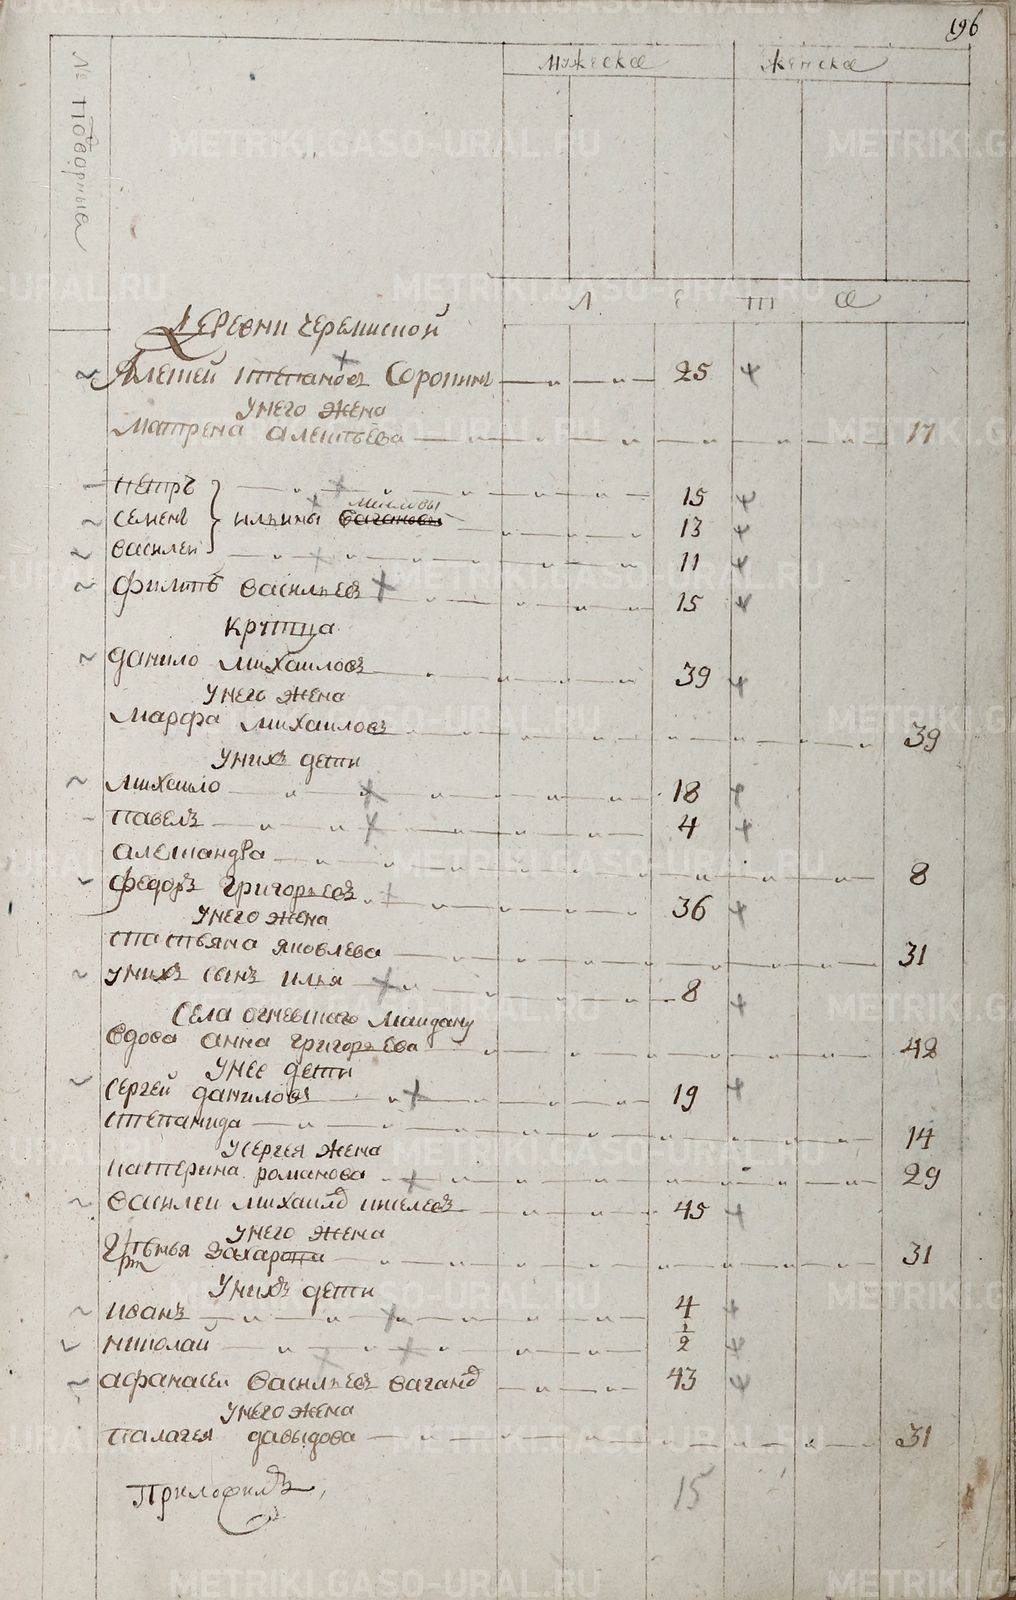 196
№ подворныа
мужеска
женска
Л е т а
Деревни черемиской
Алексей степановъ Соромин 25
У него жена
Матрена алексѣева 17
петръ 15
семенъ ильины 13
василеи 11
филипъ василиевъ 15
Крутца
данило михаиловъ 39
У него жена
марфа михаилова 39
У нихъ дети
михаило 18
павелъ 4
александра 8
федоръ григорьевъ 36
У него жена
татьяна яковлева 31
У нихъ сынъ илья 8
Села огневского маидану
вдова анна григорьева 42
У нее дети
сергей даниловъ 19
степанида 14
У сергея жена
катерина романова 29
василеи михаило киселевъ 45
У него жена
захарова 31
У нихъ дети
иванъ 4
николай 1/2
афанасеи василиевъ ваганов 43
У него жена
палагея давыдова 31
15